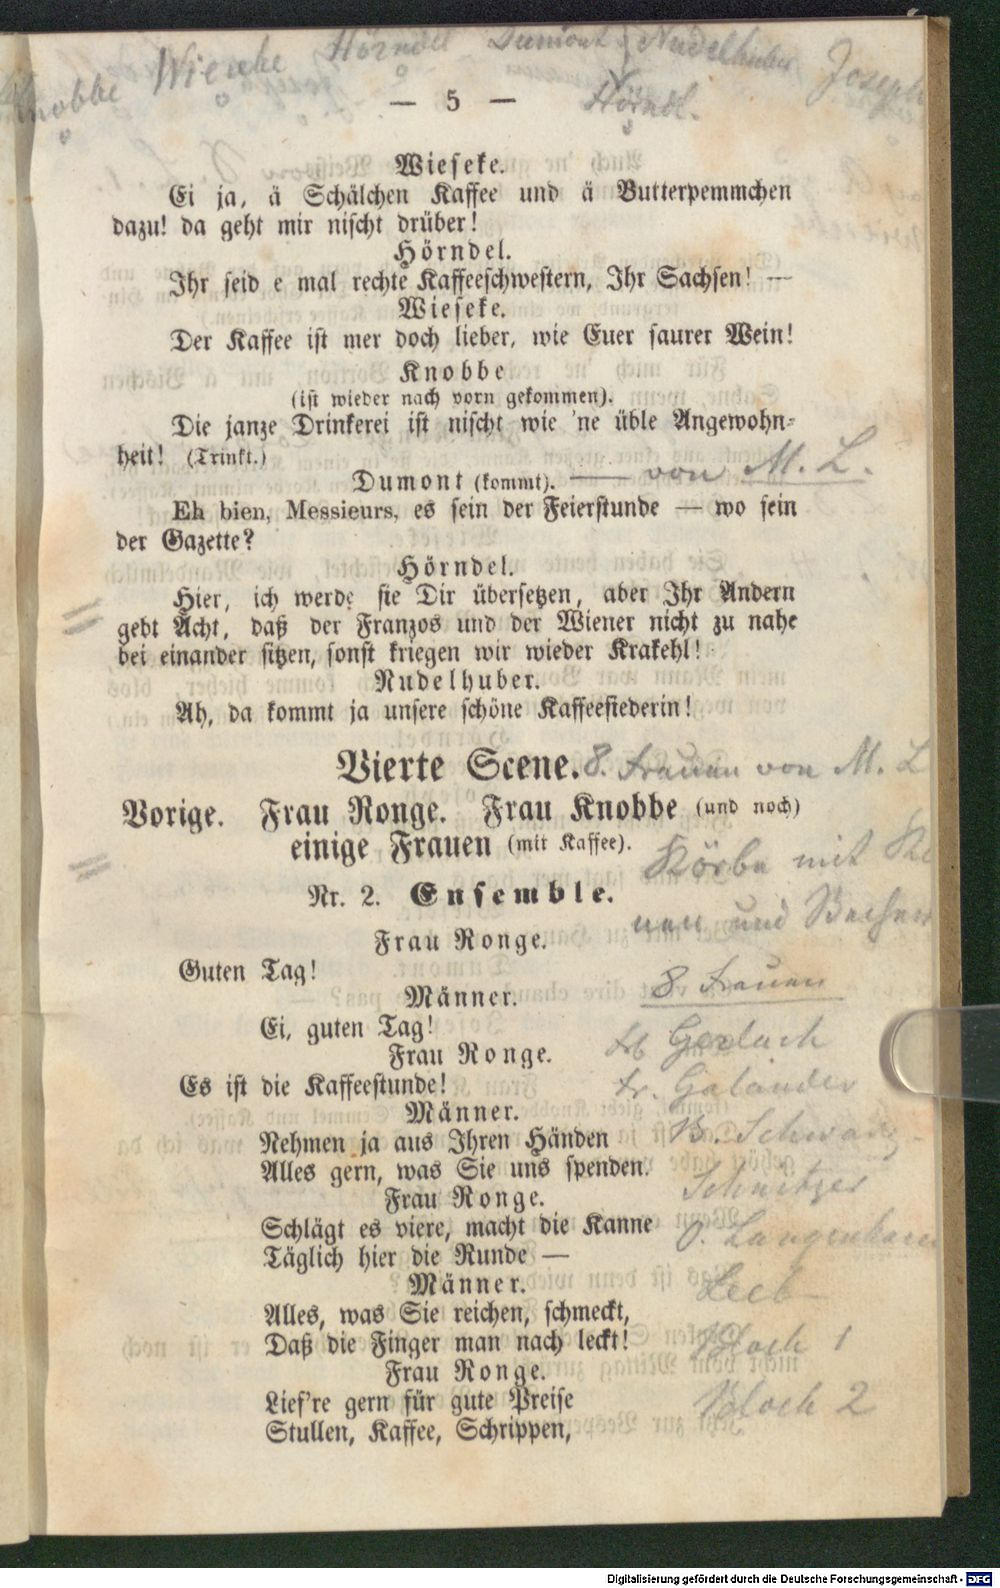 Knobbe Wieseke Hörndel Dumont Nudelhuber Joseph
— 5 —
Hörndl.
Wieseke.
Ei ja, ä Schälchen Kaffee und ä Butterpemmchen
dazu! da geht mir nischt drüber!
Hörndel.
Ihr seid e mal rechte Kaffeeschwestern, Ihr Sachsen! —
Wieseke.
Der Kaffee ist mer doch lieber, wie Euer saurer Wein!
Knobbe
(ist wieder nach vorn gekommen).
Die janze Drinkerei ist nischt wie 'ne üble Angewohn-
heit! (Trinkt.)
Dumont (kommt). — von M. L.
Eh bien, Messieurs, es sein der Feierstunde — wo sein
der Gazette?
Hörndel.
Hier, ich werde sie Dir übersetzen, aber Ihr Andern
gebt Acht, daß der Franzos und der Wiener nicht zu nahe
bei einander sitzen, sonst kriegen wir wieder Krakehl!
Nudelhuber.
Ah, da kommt ja unsere schöne Kaffeesiederin!
Vierte Scene. 8. Frauen von M. L
Vorige. Frau Ronge. Frau Knobbe (und noch)
einige Frauen (mit Kaffee).
Körbe mit
Nr. 2. Ensemble.
nen und Becher
Frau Ronge.
Guten Tag!
8 Frauen
Männer.
Ei, guten Tag!
Gerlach
Frau Ronge.
Es ist die Kaffeestunde!
fr. Galander
Männer.
Nehmen ja aus Ihren Händen
B. Schwarz
Alles gern, was Sie uns spenden.
Frau Ronge.
Schnitzer
Schlägt es viere, macht die Kanne
Täglich hier die Runde —
Männer.
Leeb
Alles, was Sie reichen, schmeckt,
Daß die Finger man nach leckt!
Bloch 1
Frau Ronge.
Lief're gern für gute Preise
Bloch 2
Stullen, Kaffee, Schrippen,
Digitalisierung gefördert durch die Deutsche Forschungsgemeinschaft - DFG